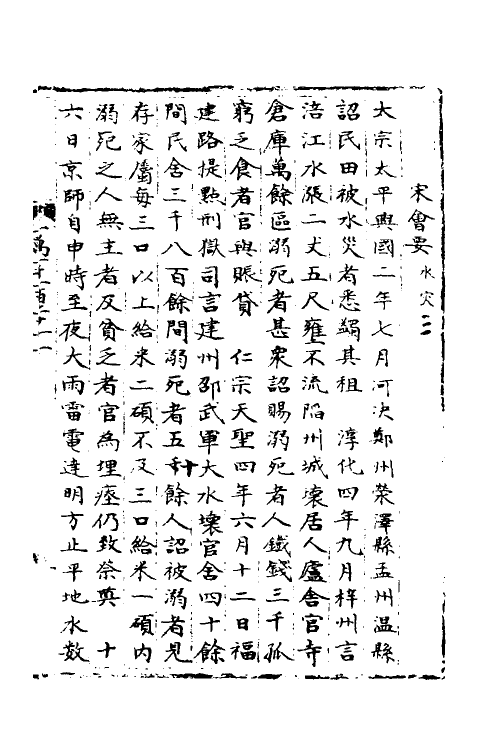 宋會要 水災二
太宗太平興國二年七月河決鄭州滎澤縣孟州温縣
詔民田被水災者悉蠲其租 淳化四年九月梓州言
涪江水漲二丈五尺壅不流陷州城壞居人廬舍官寺
倉庫萬餘區溺死者甚衆詔賜溺死者人鐵錢三千孤
窮乏食者官與賑貸 仁宗天聖四年六月十二日福
建路提點刑獄司言建州邵武軍大水壞官舍四十餘
間民舍三千八百餘間溺死者五十餘人詔被溺者見
存家屬每三口以上給米二碩不及三口給米一碩內
溺死之人無主者及貧乏者官為埋瘞仍致祭奠 十
六日京師自申時至夜大雨雷電達明方止平地水數